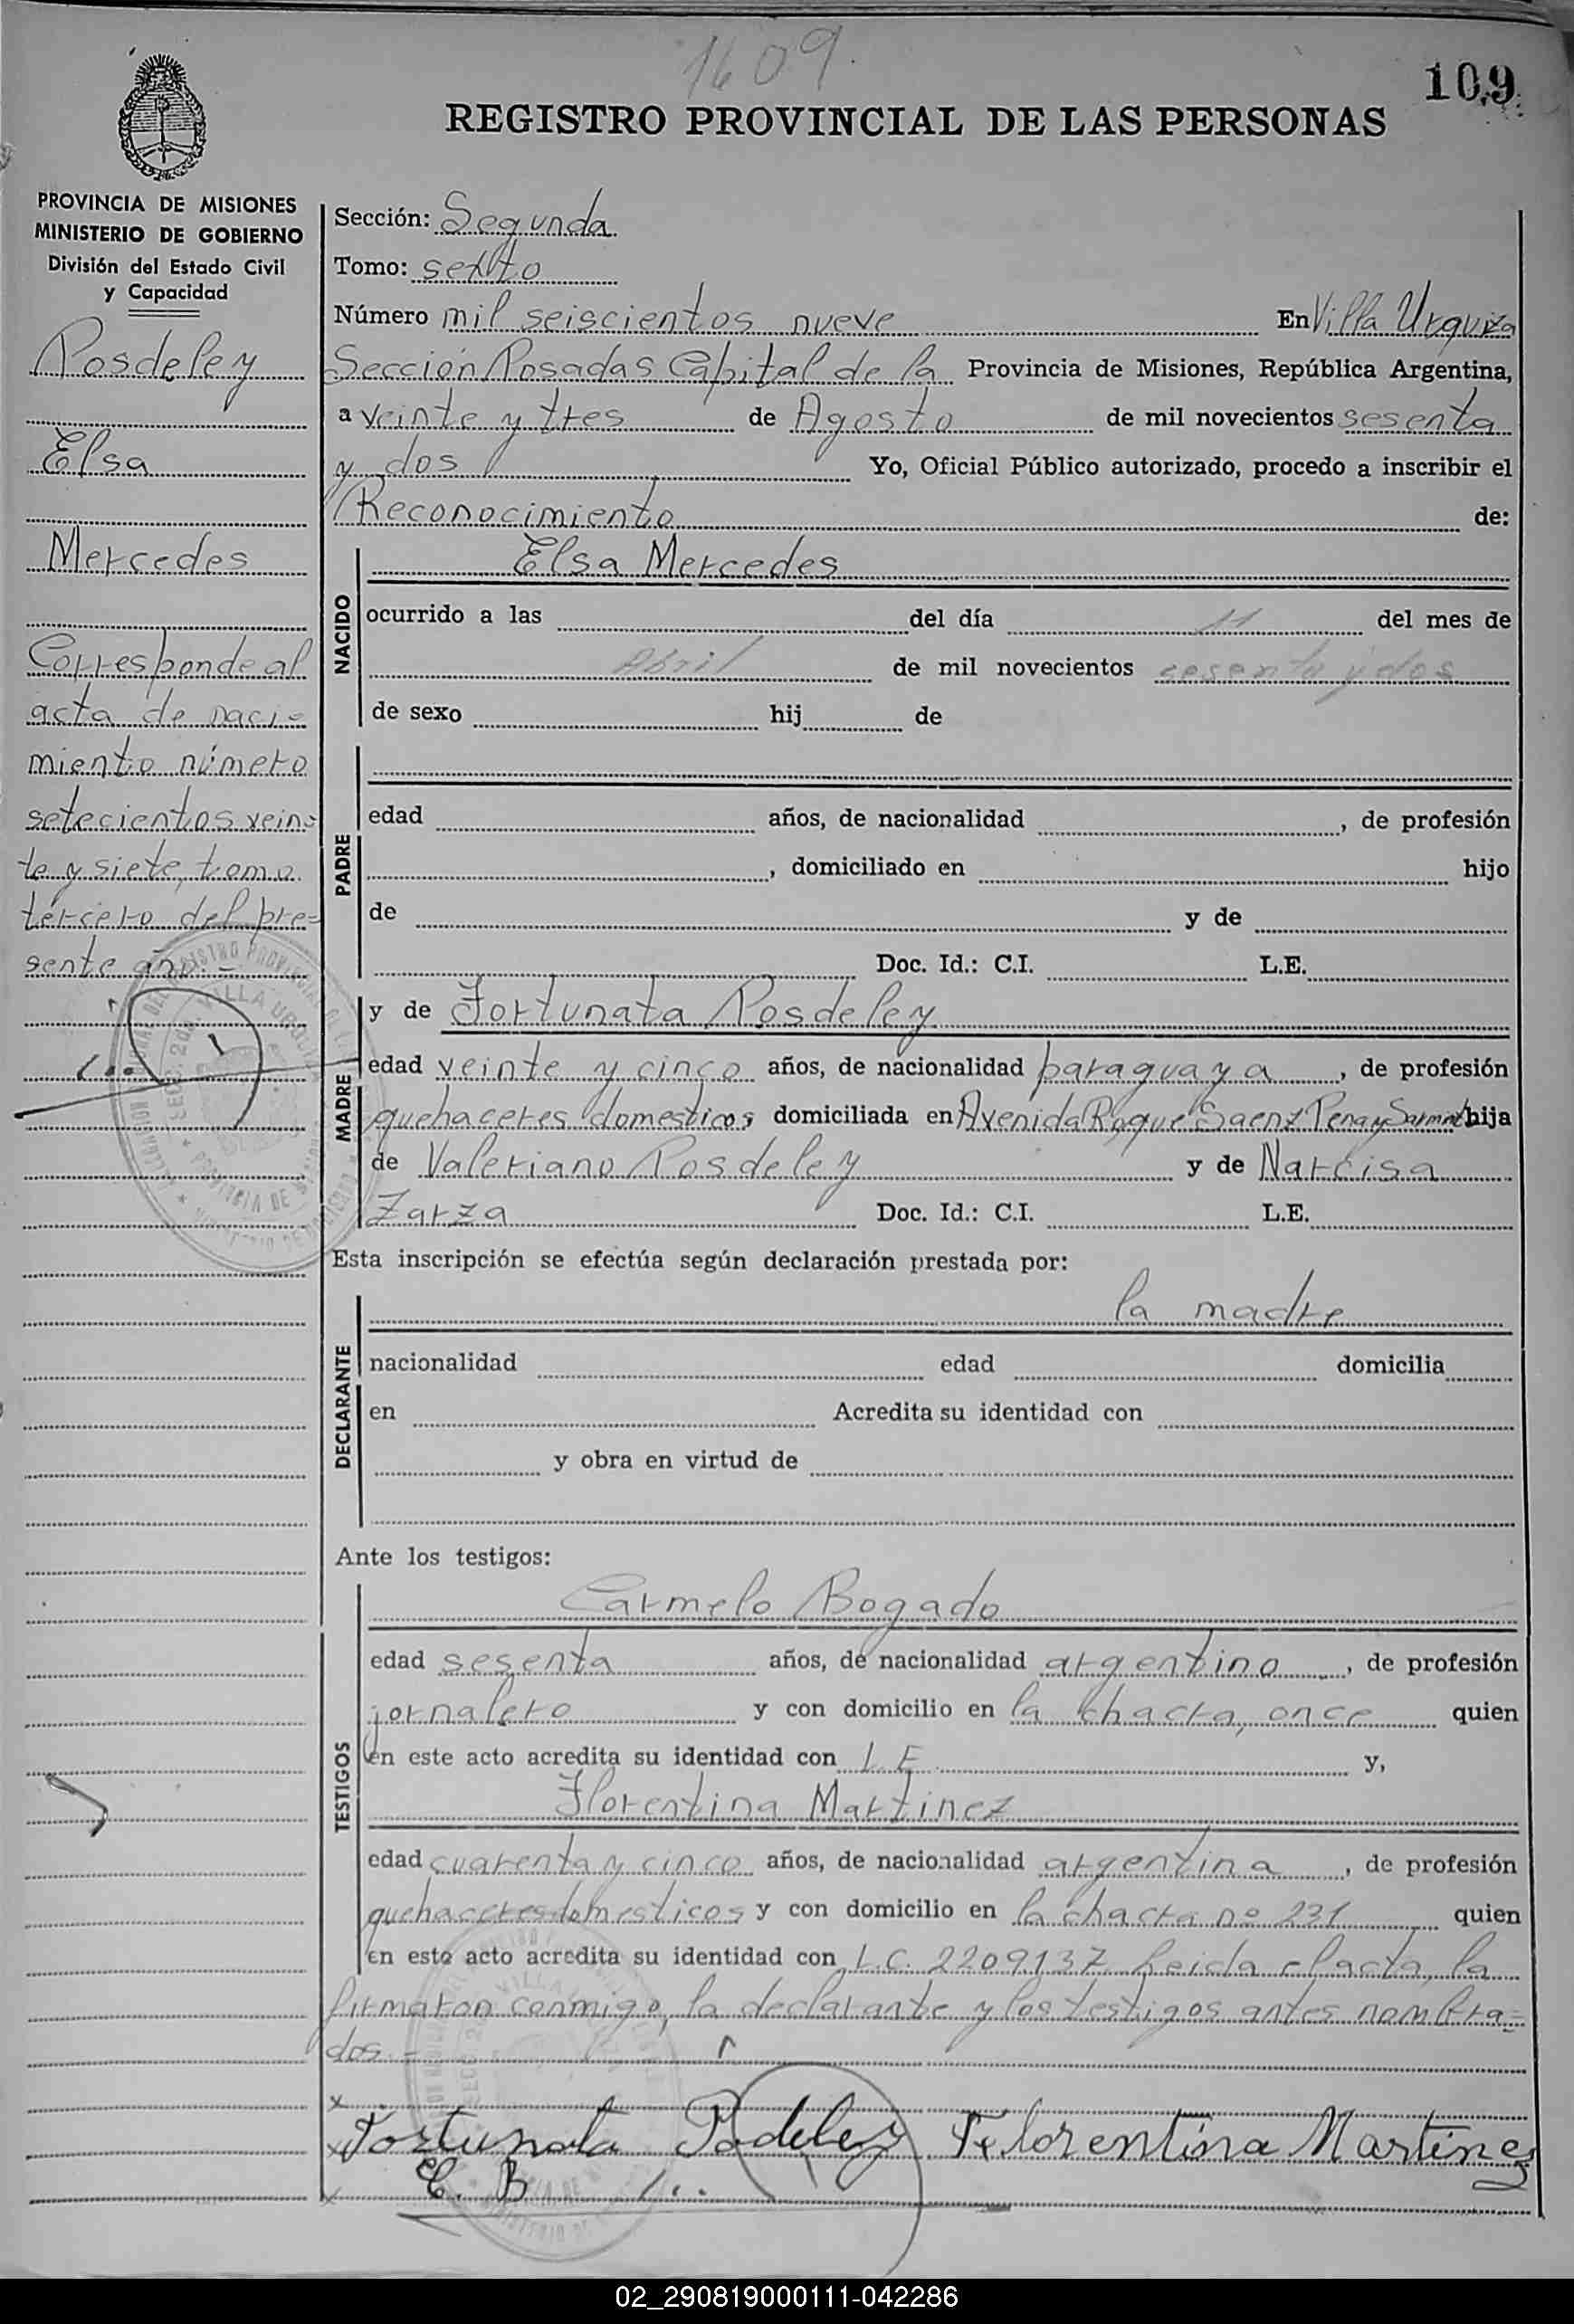 1609.
109
REGISTRO PROVINCIAL DE LAS PERSONAS
PROVINCIA DE MISIONES
MINISTERIO DE GOBIERNO
División del Estado Civil
y Capacidad
Rosdeley
Elsa
Mercedes
Corresponde al
acta de naci-
miento número
setecientos vein-
te y siete, tomo
tercero del pre-
sente año.-
Sección: Segunda
Tomo: sexto
Número mil seiscientos nueve En Villa Urquiza
Sección Posadas Capital de la Provincia de Misiones, República Argentina,
a veinte y tres de Agosto de mil novecientos sesenta
y dos Yo, Oficial Público autorizado, procedo a inscribir el
Reconocimiento de:
NACIDO
Elsa Mercedes
ocurrido a las del día 11 del mes de
Abril de mil novecientos sesenta y dos
de sexo hij de
PADRE
edad años, de nacionalidad , de profesión
, domiciliado en hijo
de y de
Doc. Id.: C.I. L.E.
MADRE
y de Fortunata Rosdeley
edad veinte y cinco años, de nacionalidad paraguaya , de profesión
quehaceres domesticos domiciliada en Avenida Roque Saenz Pena y hija
de Valeriano Rosdeley y de Narcisa
Zarza Doc. Id.: C.I. L.E.
Esta inscripción se efectúa según declaración prestada por:
DECLARANTE
la madre
nacionalidad edad domicilia
en Acredita su identidad con
y obra en virtud de
Ante los testigos:
TESTIGOS
Carmelo Bogado
edad sesenta años, de nacionalidad argentino , de profesión
jornalero y con domicilio en la chacra, once quien
en este acto acredita su identidad con L.E. y,
Florentina Martinez
edad cuarenta y cinco años, de nacionalidad argentina , de profesión
quehaceres domesticos y con domicilio en la chacra no 231 quien
en este acto acredita su identidad con L.C. 2209137 Leida el acta, la
firmaron conmigo, la declarante y los testigos antes nombra-
dos.-
Fortunata Podeley Florentina Martinez
C. B
02_290819000111-042286